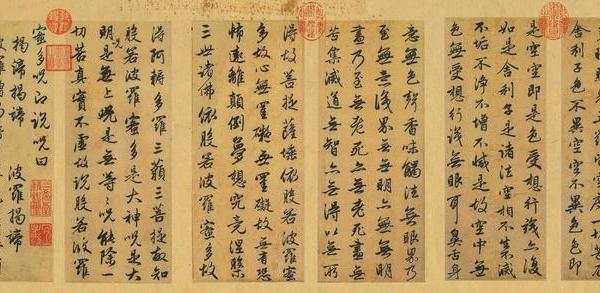 舍利子色不異空空不異色色即
是空空即是色受想行識亦復
如是舍利子是諸法空相不生不滅
不垢不淨不增不減是故空中無
色無受想行識無眼耳鼻舌身
意無色聲香味觸法無眼界乃
至無意識界無無明亦無無明
盡乃至無老死亦無老死盡無
苦集滅道無智亦無得以無所
得故菩提薩埵依般若波羅蜜
多故心無罣礙無罣礙故無有恐
怖遠離顛倒夢想究竟涅槃
三世諸佛依般若波羅蜜多故
得阿耨多羅三藐三菩提故知
般若波羅蜜多是大神咒是大
明咒是無上咒是無等等咒能除一
切苦真實不虛故說般若波羅
蜜多咒即說咒曰
揭諦揭諦 波羅揭諦